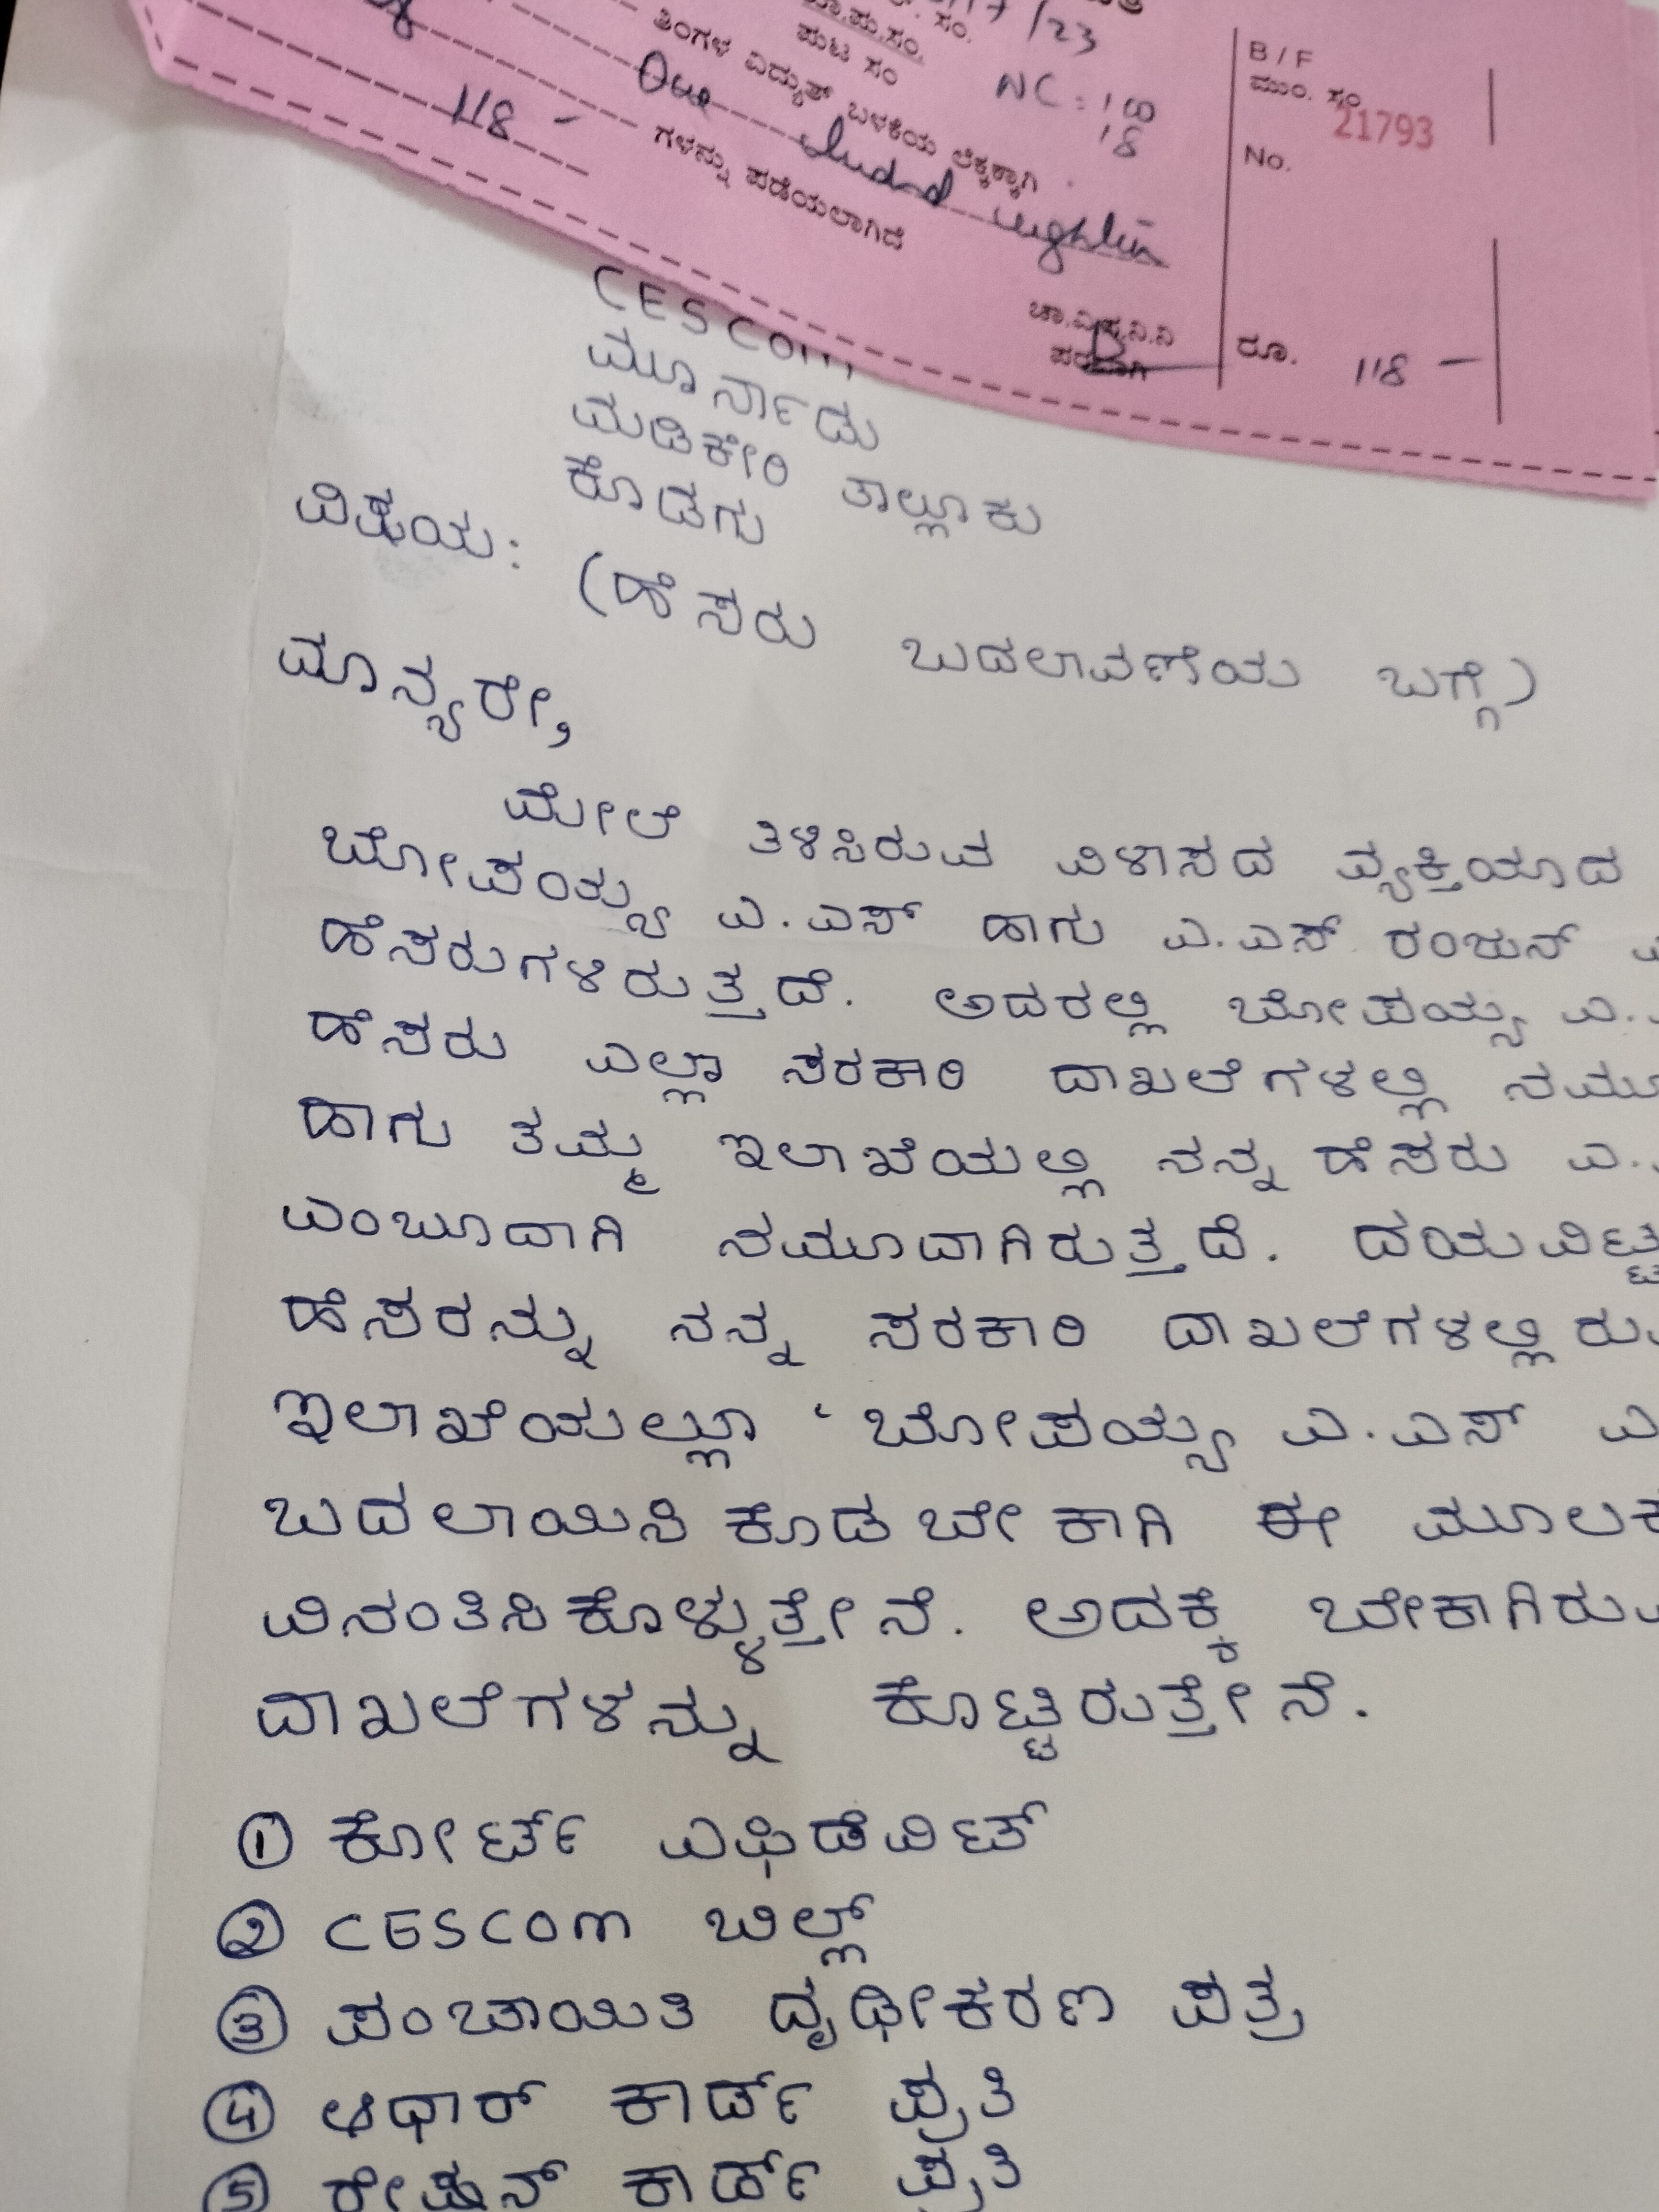 /23
ಪುಟ ಸಂ
NC : 100
18
ತಿಂಗಳ ವಿದ್ಯುತ್ ಬಳಕೆಯ ಲೆಕ್ಕಕ್ಕಾಗಿ
One hundred eighteen
118 -
ಗಳನ್ನು ಪಡೆಯಲಾಗಿದೆ
ಚಾ.ವಿ.ಸ.ನಿ.ನಿ
ಪರವಾಗಿ
B / F
ಮುಂ. ಸಂ
21793
No.
ರೂ. 118 -
CESCOM
ಮೂರ್ನಾಡು
ಮಡಿಕೇರಿ ತಾಲ್ಲೂಕು
ಕೊಡಗು
ವಿಷಯ: (ಹೆಸರು ಬದಲಾವಣೆಯ ಬಗ್ಗೆ)
ಮಾನ್ಯರೇ,
ಮೇಲೆ ತಿಳಿಸಿರುವ ವಿಳಾಸದ ವ್ಯಕ್ತಿಯಾದ
ಬೋಪಯ್ಯ ಎ.ಎಸ್ ಹಾಗು ಎ.ಎಸ್ ರಂಜನ್
ಹೆಸರುಗಳಿರುತ್ತದೆ. ಅದರಲ್ಲಿ ಬೋಪಯ್ಯ ಎ.
ಹೆಸರು ಎಲ್ಲಾ ಸರಕಾರಿ ದಾಖಲೆಗಳಲ್ಲಿ ನಮೂ
ಹಾಗು ತಮ್ಮ ಇಲಾಖೆಯಲ್ಲಿ ನನ್ನ ಹೆಸರು ಎ.
ಎಂಬೂದಾಗಿ ನಮೂದಾಗಿರುತ್ತದೆ. ದಯವಿಟ್ಟ
ಹೆಸರನ್ನು ನನ್ನ ಸರಕಾರಿ ದಾಖಲೆಗಳಲ್ಲಿರು
ಇಲಾಖೆಯಲ್ಲೂ ‘ಬೋಪಯ್ಯ ಎ.ಎಸ್ ಎ
ಬದಲಾಯಿಸಿಕೊಡಬೇಕಾಗಿ ಈ ಮೂಲಕ
ವಿನಂತಿಸಿಕೊಳ್ಳುತ್ತೇನೆ. ಅದಕ್ಕೆ ಬೇಕಾಗಿರು
ದಾಖಲೆಗಳನ್ನು ಕೊಟ್ಟಿರುತ್ತೇನೆ.
① ಕೋರ್ಟ್ ಎಫಿಡೆವಿಟ್
② CESCOM ಬಿಲ್ಲ್
③ ಪಂಚಾಯಿತಿ ದೃಢೀಕರಣ ಪತ್ರ
④ ಆಧಾರ್ ಕಾರ್ಡ್ ಪ್ರತಿ
⑤ ರೇಷನ್ ಕಾರ್ಡ್ ಪ್ರತಿ